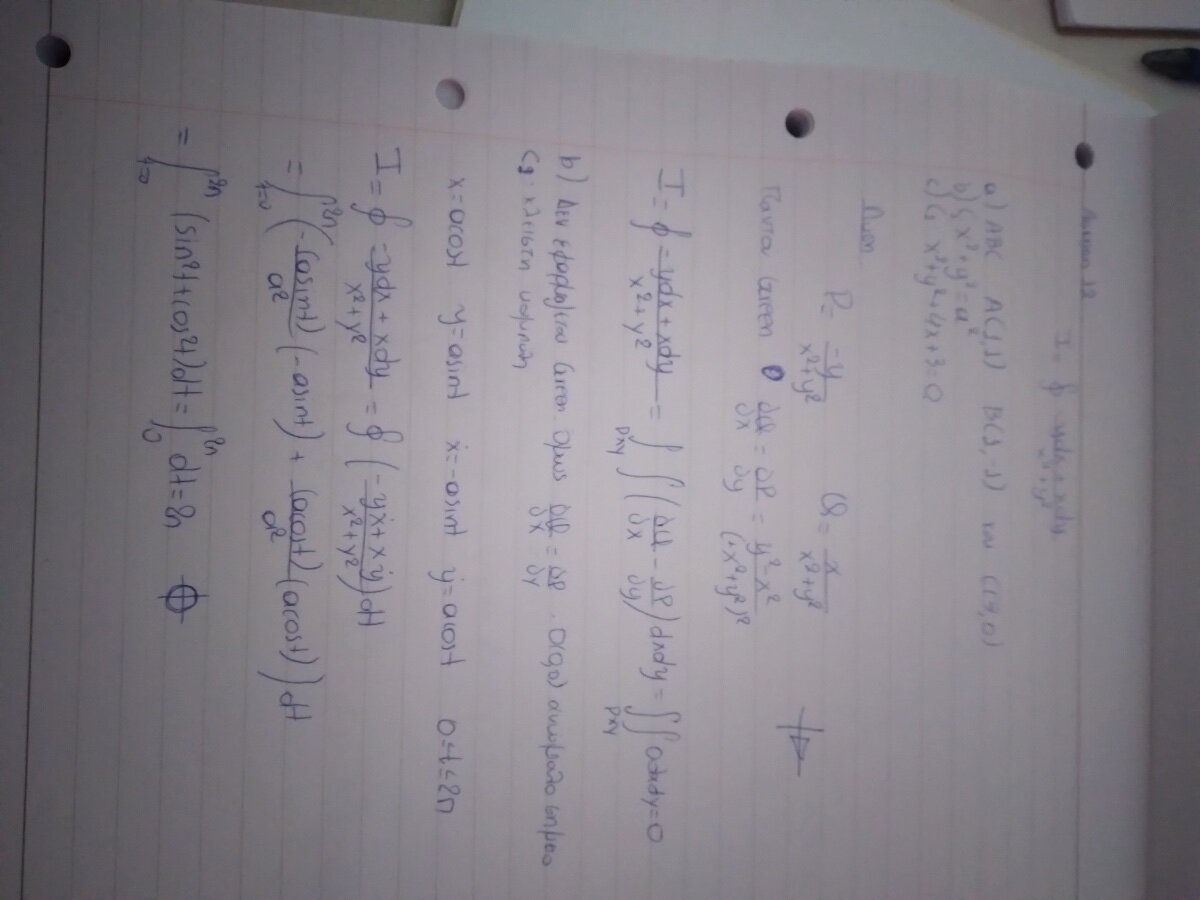 Άσκηση 12
I = ∮ -ydx + xdy / x²+y²
a) ABC A(1,1) B(1,-1) και C(2,0)
b) C₂ x²+y²=a²
c) C₃ x²+y²+4x+3=0
Λύση
P = -y / x²+y² Q = x / x²+y²
Green ∂Q/∂x = ∂P/∂y = y²-x² / (x²+y²)²
I = ∮ -ydx + xdy / x²+y² = ∫∫Dxy (∂Q/∂x - ∂P/∂y) dxdy = ∫∫Dxy 0dxdy = 0
b) Δεν εφαρμόζεται Green όμως ∂Q/∂x = ∂P/∂y . O(0,0) ανώμαλο σημείο
C₂: κλειστή καμπύλη
x=acost y=asint ẋ=-asint ẏ=acost 0≤t≤2π
I = ∮ -ydx + xdy / x²+y² = ∮ (-yẋ + xẏ / x²+y²) dt
= ∫t=0 2π (-(asint)/a² (-asint) + (acost)/a² (acost)) dt
= ∫t=0 2π (sin²t + cos²t) dt = ∫0 2π dt = 2π